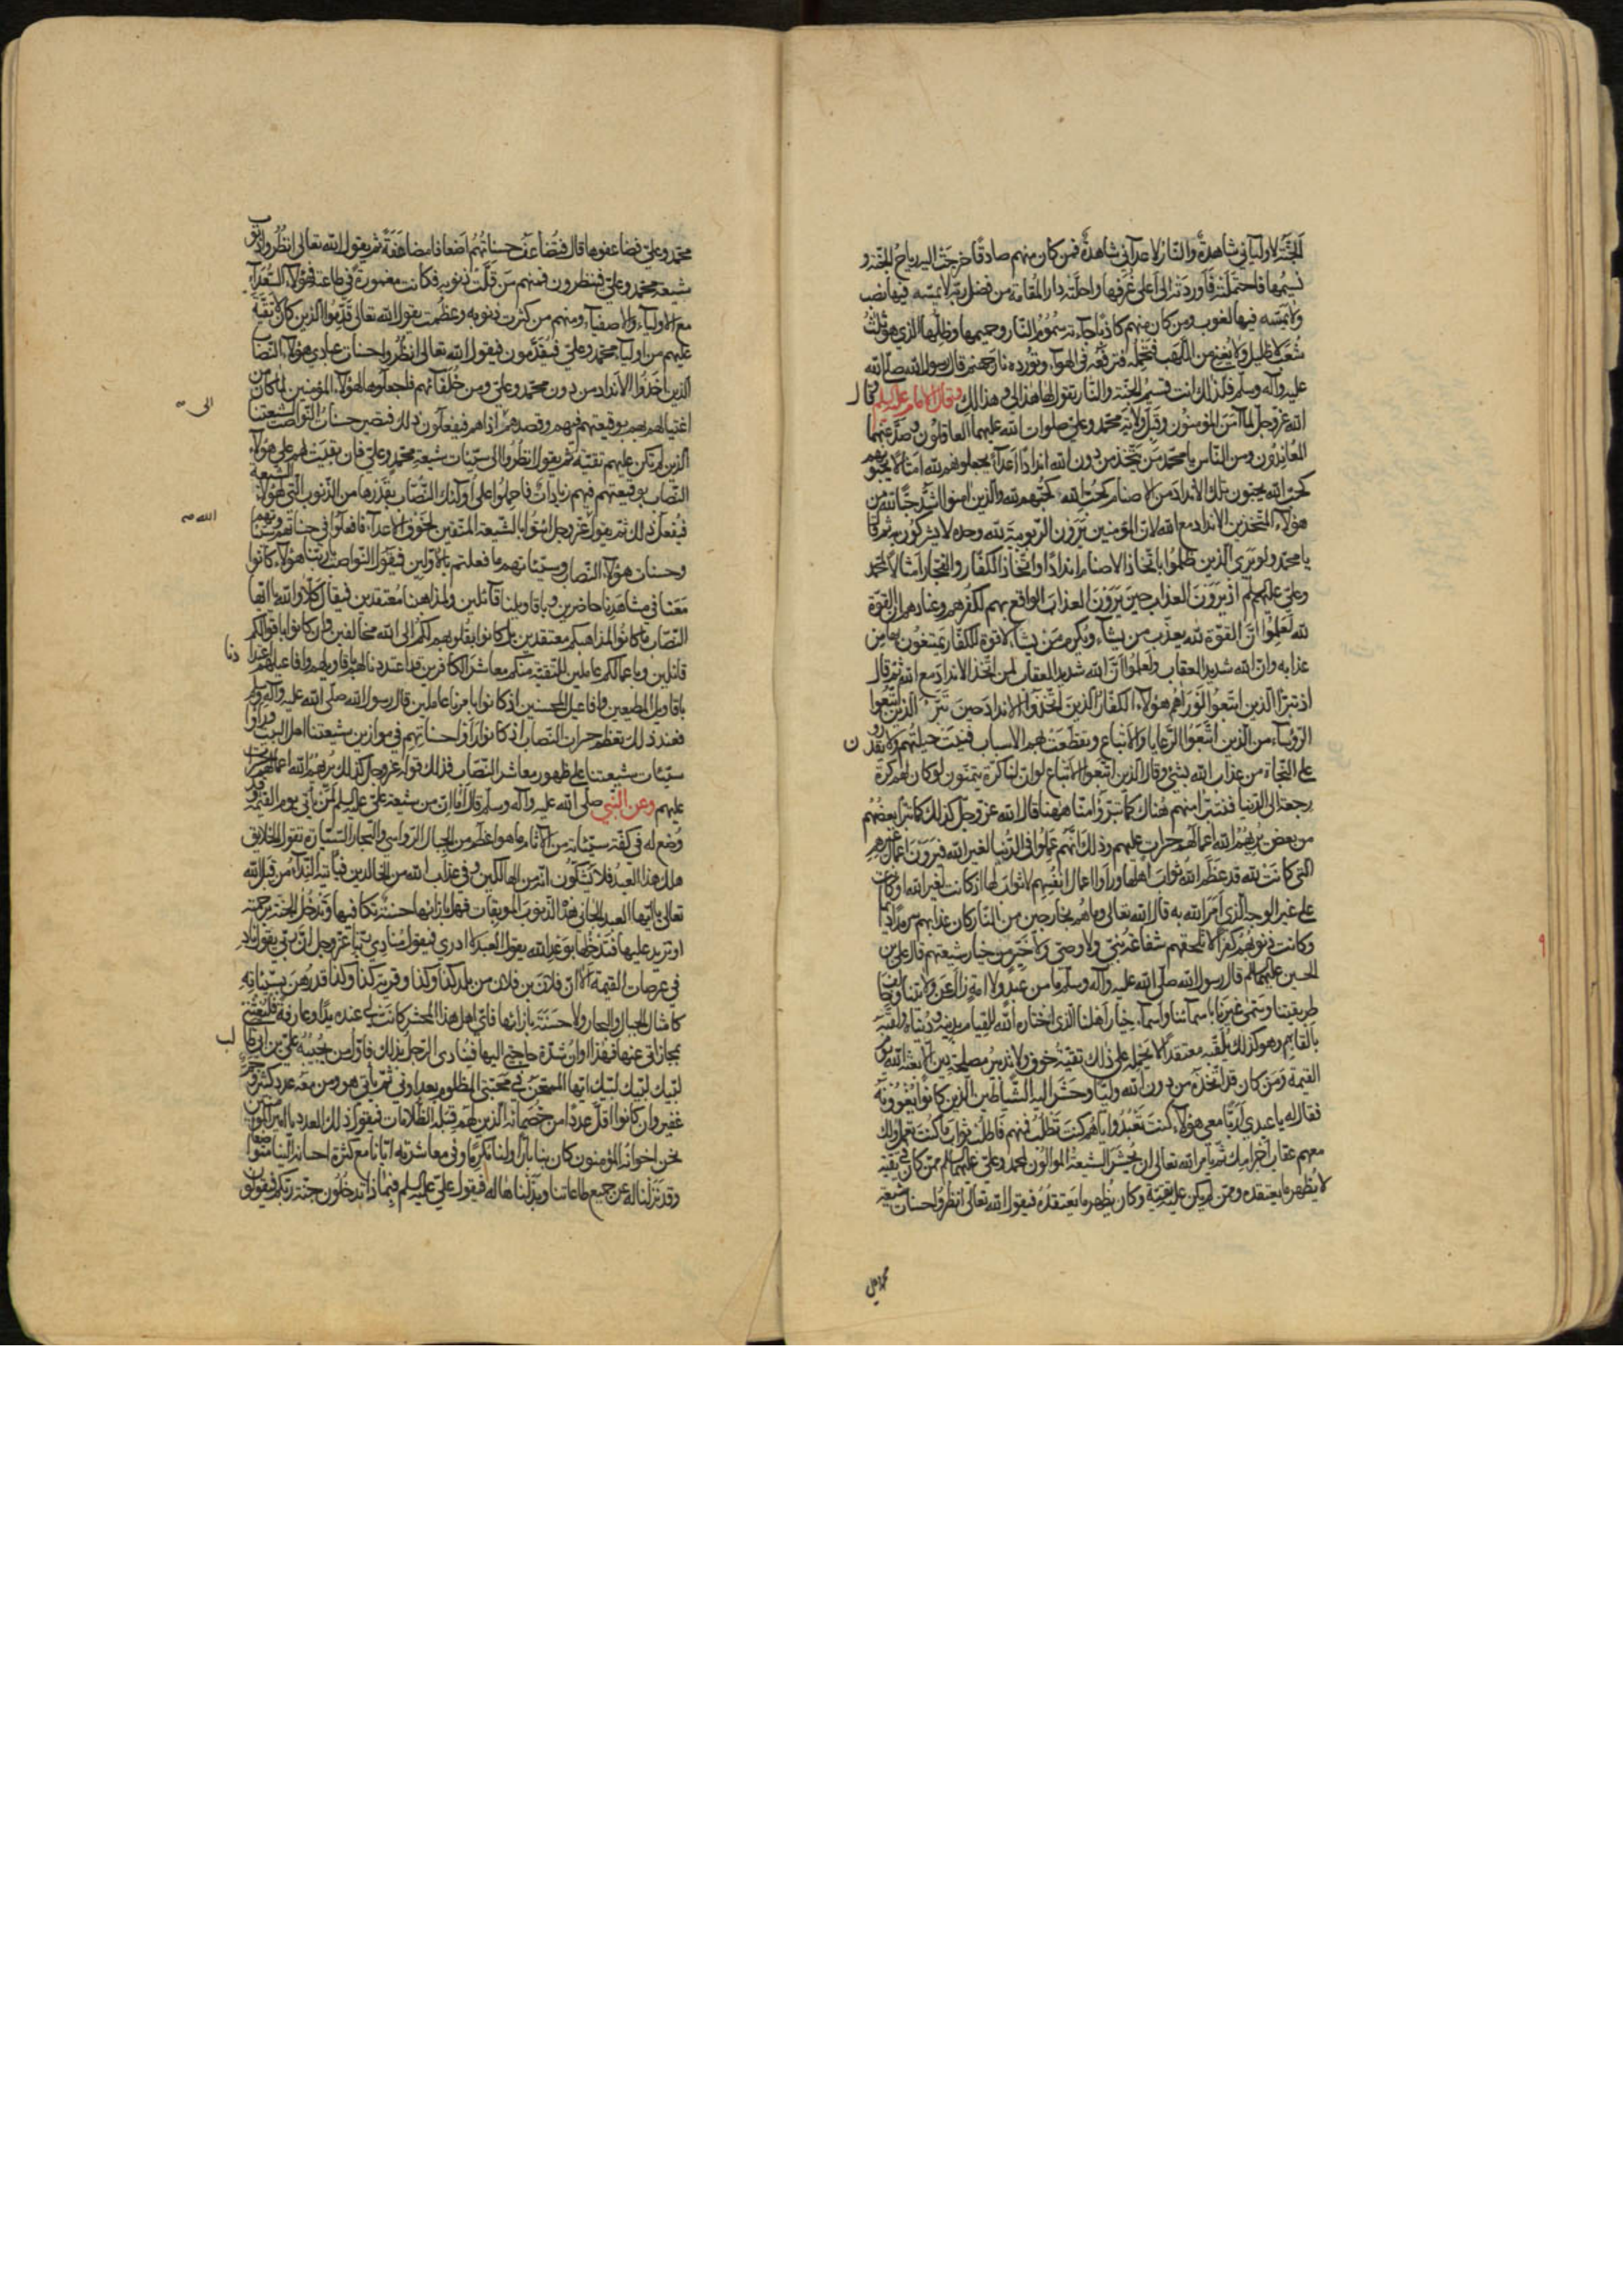 الجنّة لاوليائي شاهدة والنّار لاعدائي شاهدة فمن كان منهم صادقا خرجت اليه رياح الجنّة و
نسيمها فاحتملته فاوردته الى اعلى غرفها واحلّته دار المقامة من فضل ربّه لا يمسّه فيها نصب
ولا يمسّه فيها لغوب ومن كان منهم كاذبا جاءته سموم النّار وحميمها وظلّها الذي هو ثلث
شعب لا ظليل ولا يغني من اللّهب فتحمله فترفعه في الهوآء وتورده نار جهنم قال رسول الله صلّى الله
عليه وآله وسلّم فلذلك انت قسيم الجنّة والنّار تقول لها هذا لي وهذا لك وقال الامام عليه السلم قال
الله عزّوجل لما آمن المؤمنون وقبل ولاية محمّد وعلي صلوات الله عليهما العاقلون وصدّ عنهما
المعاندون ومن النّاس يا محمّد من يتّخذ من دون الله اندادا اعدآء يجعلونهم لله امثالا يحبّونهم
كحبّ الله يحبّون تلك الانداد من الاصنام كحبّ الله كحبّهم لله والذين امنوا اشدّ حبّا لله من
هؤلآء المتّخذين الانداد مع الله لان المؤمنين يرون الربوبية لله وحده لا يشركون به ثم قال
يا محمّد ولو يرى الّذين ظلموا باتّخاذ الاصنام اندادا واتّخاذ الكفّار والفجّار امثالا لمحمّد
وعلي عليهم السلم اذ يرون العذاب حين يرون العذاب الواقع بهم لكفرهم وعنادهم ان القوّة
لله لعلموا انّ القوّة لله يعذّب من يشآء ويكرم من يشآء لا قوة للكفّار يمتنعون بها من
عذابه وانّ الله شديد العقاب ولعلموا انّ الله شديد العقاب لمن اتّخذ الانداد مع الله ثم قال
اذ تبرّأ الّذين اتّبعوا لو رأهم هؤلآء الكفّار الذين اتّخذوا الانداد حين تبرّأ الّذين اتّبعوا
الرّؤسآء من الّذين اتّبعوا الرّعايا والاتباع وتقطّعت بهم الاسباب فنيت حيلتهم ولا يقدرون
على النّجاة من عذاب الله بشئ وقال الّذين اتّبعوا الاتباع لو ان لنا كرّة يتمنّون لو كان لهم كرّة
رجعة الى الدّنيا فنتبرّأ منهم هناك كما تبرّؤا منّا ههنا قال الله عزّوجل كذلك كما تبرّأ بعضهم
من بعض يريهم الله اعمالهم حسرات عليهم وذلك انّهم عملوا في الدّنيا لغير الله فيرون اعمال غيرهم
التي كانت لله قد عظّم الله ثواب اهلها وراوا اعمال انفسهم لا ثواب لها اذ كانت لغير الله او كانت
على غير الوجه الّذي امر الله به قال الله تعالى وما هم بخارجين من النّار كان عذابهم سرمدا دائما
وكانت ذنوبهم كفرا لا تلحقهم شفاعة نبي ولا وصي ولا خيّر من خيار شيعتهم قال علي بن
الحسين عليهما السلم قال رسول الله صلّى الله عليه وآله وسلّم ما من عبد ولا امة زال عن ولايتنا وخالف
طريقتنا وسمّى غيرنا باسمائنا واسمآء خيار اهلنا الّذي اختاره الله للقيام بدينه ودنياه ولقّبه
بالقابهم وهو كذلك يلقّبه معتقدا لا يحمله على ذلك تقيّة خوف ولا تدبير مصلحة دين الا بعثه الله يوم
القيمة ومن كان قد اتّخذه من دون الله وليّا وحشر اليه الشّياطين الّذين كانوا يغوونه
فقال له يا عبدي أربّا معي هؤلاء كنت تعبد واياهم كنت تطلب فمنهم فاطلب ثواب ما كنت تعمل ولك
معهم عقاب اجرامك ثم يأمر الله تعالى ان يحشر الشيعة الموالون لمحمد وعلي عليهما السلم ممّن كان في تقيّة
لا يظهر ما يعتقده وممّن لم يكن عليه تقيّة وكان يظهر ما يعتقده فيقول الله تعالى انظروا حسنات شيعة
محمد وعلي
محمّد وعلي فضاعفوها قال فتضاعف حسناتهم اضعافا مضاعفة ثم يقول الله تعالى انظروا ذنوب
شيعة محمّد وعلي فينظرون فمنهم من قلّت ذنوبه فكانت مغمورة في طاعته فهؤلآء السّعدآء
مع الاوليآء والاصفيآء ومنهم من كثرت ذنوبه وعظمت يقول الله تعالى قدّموا الّذين كان لا تقيّة
عليهم من اوليآء محمّد وعلي فيقدّمون فيقول الله تعالى انظروا حسنات عبادي هؤلآء النصّاب
الذين اخذوا الانداد من دون محمّد وعلي ومن خلفائهم فاجعلوها لهؤلآء المؤمنين لما كان من
اغتيالهم لهم بوقيعتهم فيهم وقصدهم الى اذاهم فيفعلون ذلك فتصير حسنات النّواصب لشيعتنا
الّذين لم تكن عليهم تقيّة ثم يقول انظروا الى سيّئات شيعة محمّد وعلي فان بقيت لهم على هؤلآء
النصّاب بوقيعتهم فيهم زيادات فاحملوا على اولئك النصّاب بقدرها من الذّنوب التي لهؤلآء الشيعة
فيفعل ذلك ثم يقول الله عزّوجل ائتوا بالشيعة المتّقين لخوف الاعدآء فافعلوا في حسناتهم وسيّئاتهم
وحسنات هؤلآء النصّاب وسيّئاتهم ما فعلتم بالاوّلين فيقول النّواصب يا ربّنا هؤلآء كانوا
معنا في مشاهدنا حاضرين وباقاويلنا قائلين ولمذاهبنا معتقدين فيقال كلّا والله يا ايّها
النصّاب ما كانوا لمذاهبكم معتقدين بل كانوا بقلوبهم لكم الى الله مخالفين وان كانوا باقوالكم
قائلين وباعمالكم عاملين للتقيّة منكم معاشر الكافرين قد اعتددنا لهم باقاويلهم وافاعيلهم اعتدادنا
باقاويل المطيعين وافاعيل المحسنين اذ كانوا بامرنا عاملين قال رسول الله صلّى الله عليه وآله وسلّم
فعند ذلك تعظم حسرات النصّاب اذ كانوا راوا حسناتهم في موازين شيعتنا اهل البيت وراوا
سيّئات شيعتنا على ظهور معاشر النصّاب فذلك قوله عزّوجل كذلك يريهم الله اعمالهم حسرات
عليهم وعن النّبي صلّى الله عليه وآله وسلّم قال اما انّ من شيعة علي عليه السلم لمن يأتي يوم القيمة وقد
وضع له في كفّة سيّئاته من الآثام ما هو اعظم من الجبال الرّواسي والبحار السّيّارة تقول الخلايق
هلك هذا العبد فلا يشكّون انّه من الهالكين وفي عذاب الله من الخالدين فيأتيه النّدآء من قبل الله
تعالى يا ايّها العبد الجاني هذه الذّنوب الموبقات فهل بازائها حسنة تكافيها وتدخل الجنّة برحمة
او تزيد عليها فتدخلها بوعد الله يقول العبد لا ادري فيقول منادي ربّنا عزّوجل انّ ربّي يقول ناد
في عرصات القيمة الا انّ فلان بن فلان من بلد كذا وكذا وقرية كذا وكذا قد رهن بسيّئاته
كامثال الجبال والبحار ولا حسنة بازائها فاي اهل هذا المحشر كانت لي عنده يد او عارفة فليغثني
بمجازاتي عنها فهذا اوان شدّة حاجتي اليها فينادي الرّجل بذلك فاوّل من يجيبه علي بن ابي طالب
لبّيك لبّيك لبّيك ايّها الممتحن في محبّتي المظلوم بعداوتي ثم يأتي هو ومن معه عدد كثير وجمّ
غفير وان كانوا اقلّ عددا من خصمائه الّذين لهم قبله الظّلامات فيقول ذلك العدد يا امير المؤمنين
نحن اخوانه المؤمنون كان بنا بارّا ولنا مكرما وفي معاشرته ايّانا مع كثرة احسانه الينا متواضعا
وقد نزلنا له عن جميع طاعاتنا وبذلناها له فيقول علي عليه السلم فبماذا تدخلون جنّة ربّكم فيقولون